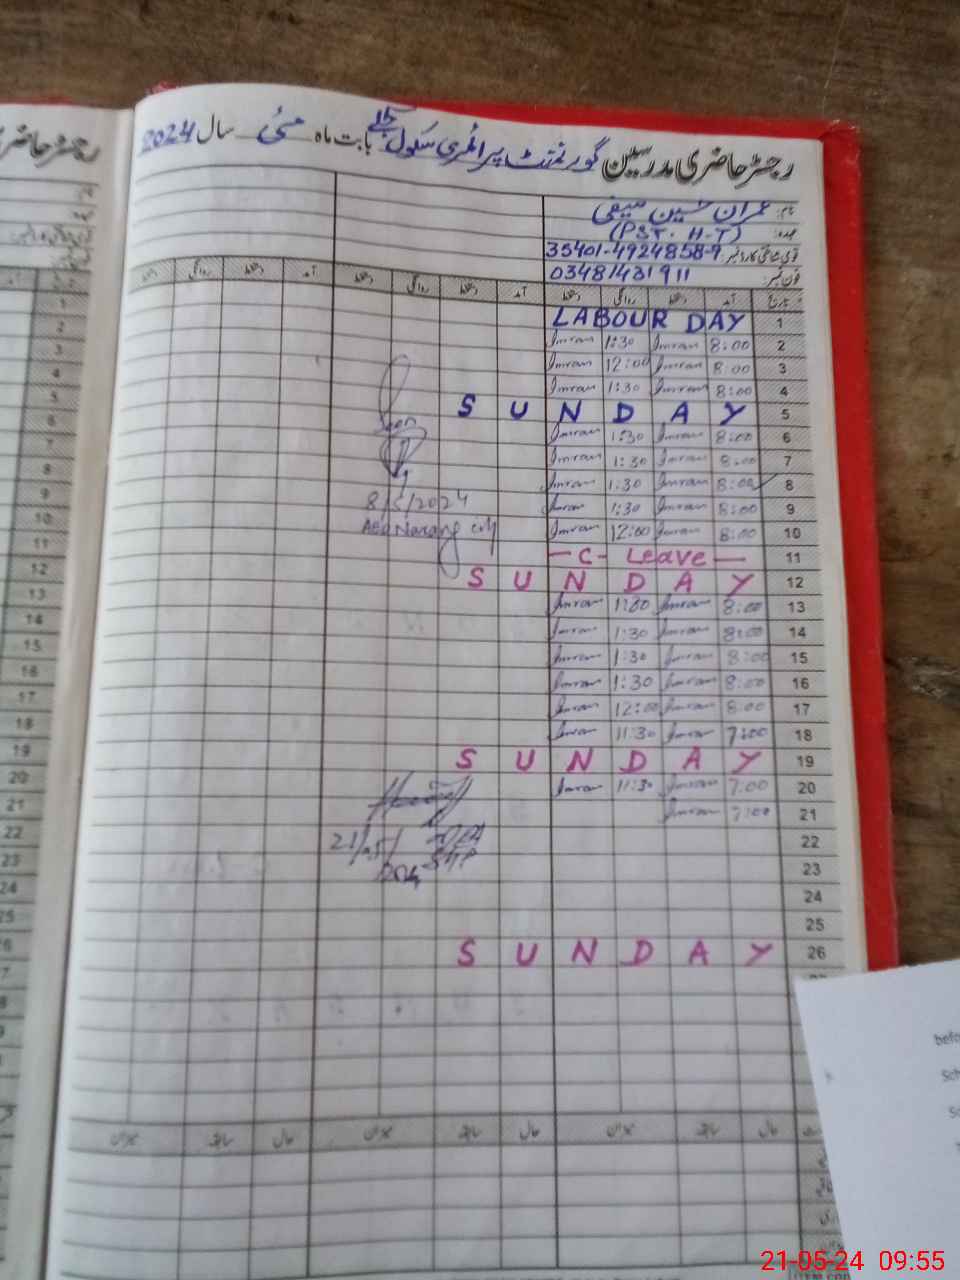 رجسٹر حاضری مدرسین گورنمنٹ پرائمری سکول بابت ماہ مئی سال 2024
نام: عمران حسین سیفی
عہدہ: (PST. H-T)
قومی شناختی کارڈ نمبر: 35401-4924858-9
فون نمبر: 03481431911
تاریخ آمد دستخط روانگی دستخط آمد دستخط روانگی دستخط آمد دستخط روانگی دستخط
1 LABOUR DAY
2 8:00 Imran 1:30 Imran
3 8:00 Imran 12:00 Imran
4 8:00 Imran 1:30 Imran
5 SUNDAY
6 8:00 Imran 1:30 Imran
7 8:00 Imran 1:30 Imran
8 8:00 Imran 1:30 Imran
9 8:00 Imran 1:30 Imran
10 8:00 Imran 12:00 Imran
11 - C - Leave -
12 SUNDAY
13 8:00 Imran 1:30 Imran
14 8:00 Imran 1:30 Imran
15 8:00 Imran 1:30 Imran
16 8:00 Imran 1:30 Imran
17 8:00 Imran 12:00 Imran
18 7:00 Imran 11:30 Imran
19 SUNDAY
20 7:00 Imran 11:30 Imran
21 7:00 Imran
22
23
24
25
26 SUNDAY
Seen
8/5/2024
AEO Narang city
21/05/
2024
حال سابقہ میزان حال سابقہ میزان حال سابقہ میزان
رجسٹر حاضری
1
2
3
4
5
6
7
8
9
10
11
12
13
14
15
16
17
18
19
20
21
22
23
24
25
21-05-24 09:55